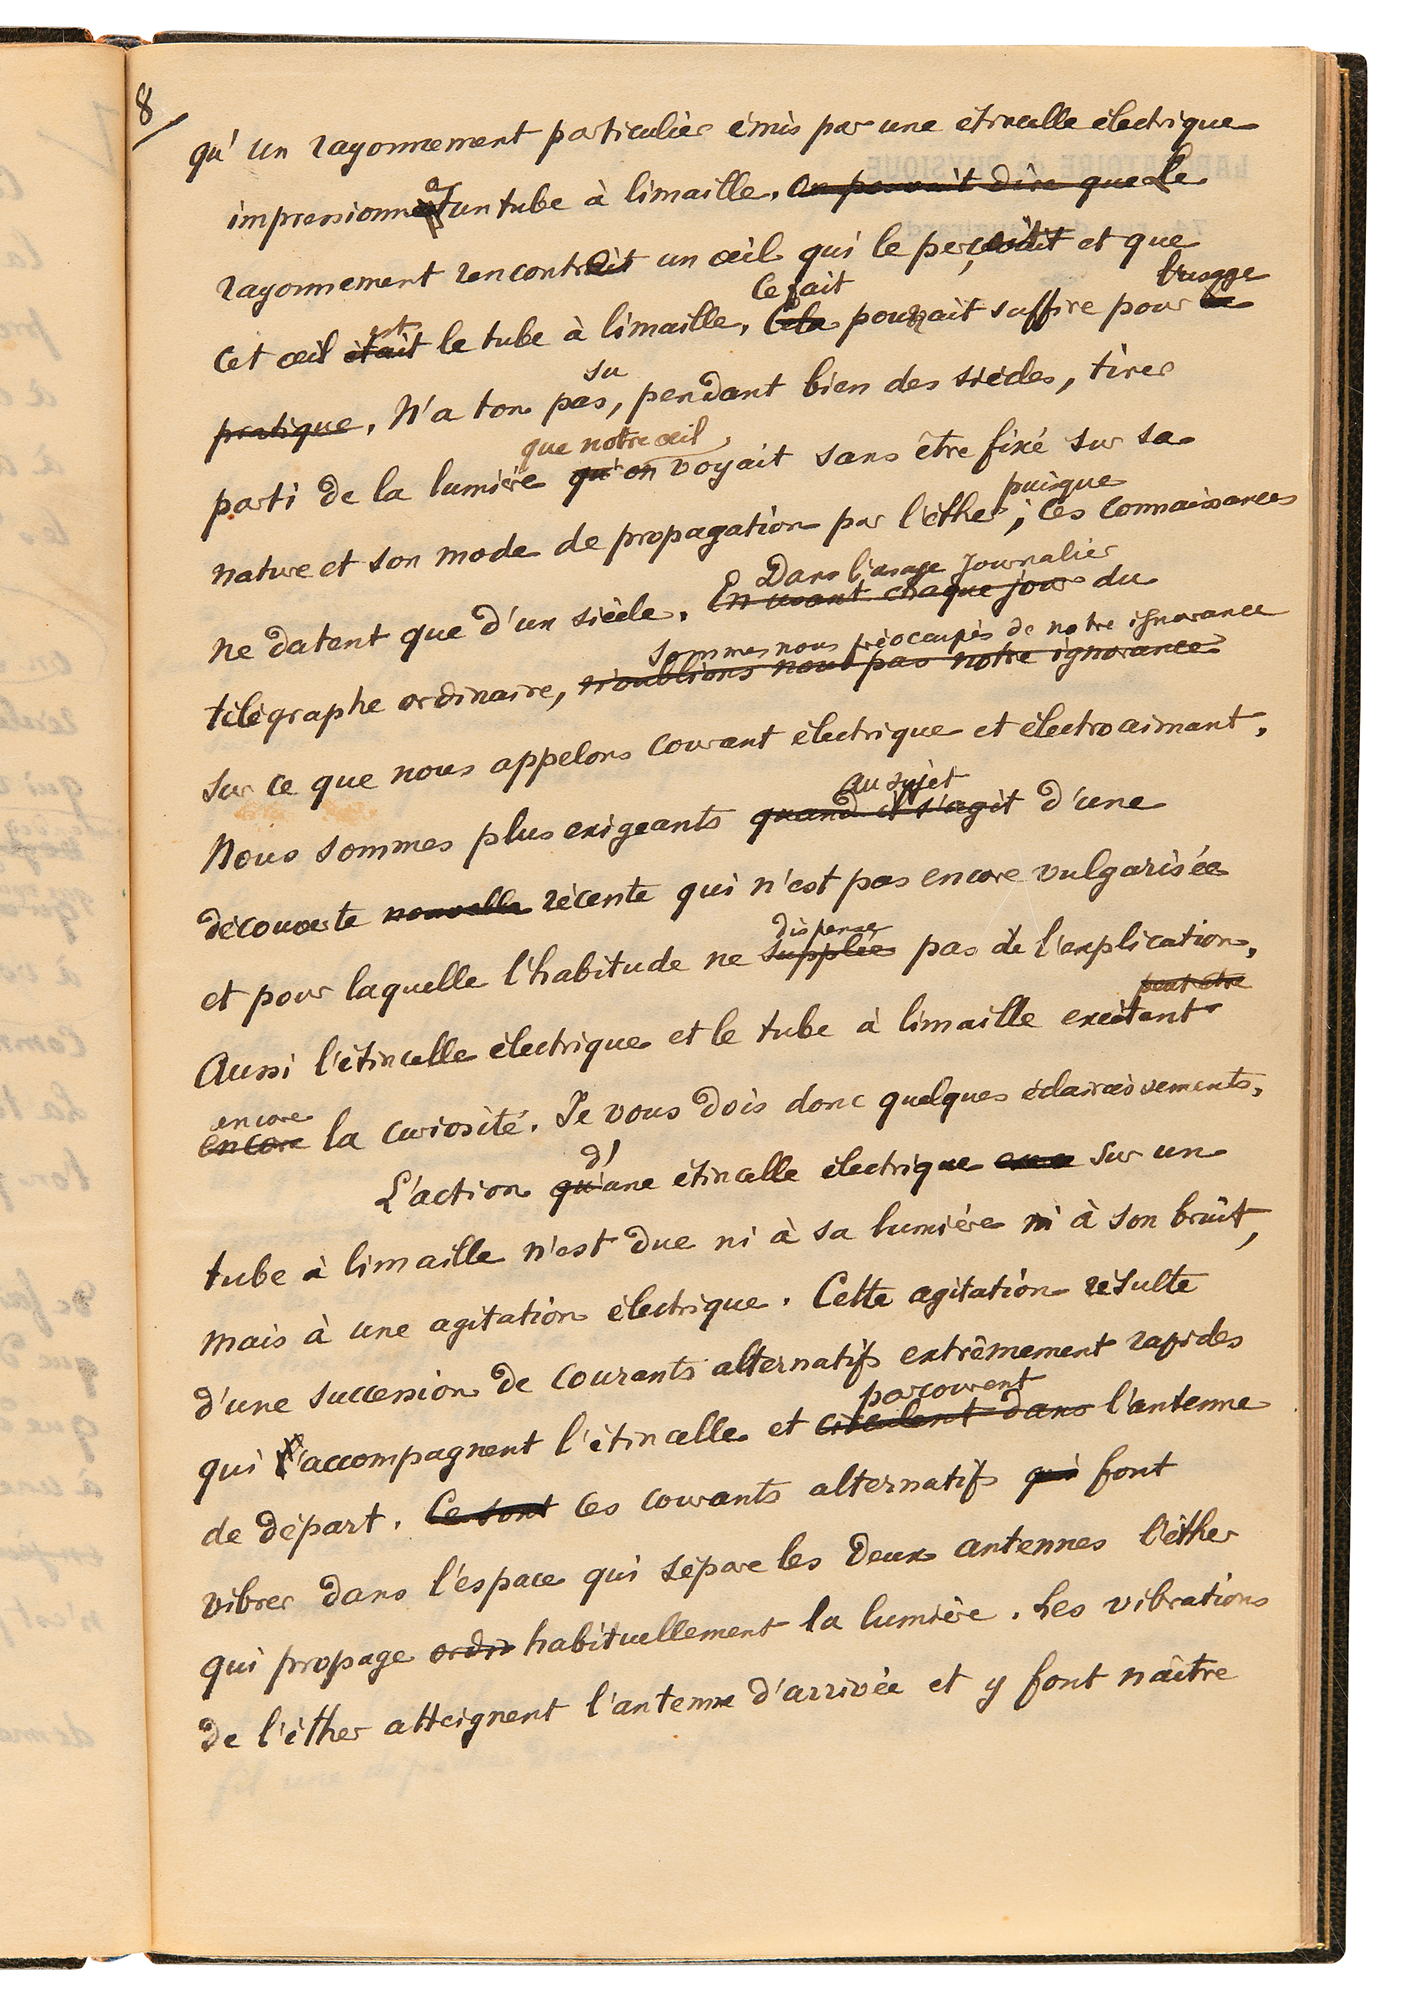 8
qu'un rayonnement particulier émis par une étincelle électrique
a
impressionnait un tube à limaille. on pouvait dire que Le
rayonnement rencontrait un œil qui le perçoit et que
Ce fait l'usage
est
cet œil était le tube à limaille. Cela pourrait suffire pour la
su
pratique. N'a ton pas, pendant bien des siècles, tirer
que notre œil
parti de la lumière qu'on voyait sans être fixé sur sa
puisque
nature et son mode de propagation par l'éther; ces connaissances
Dans l'usage journalier
ne datent que d'un siècle. En usant chaque jour du
sommes nous préoccupés de notre ignorance
télégraphe ordinaire, n'oublions nous pas notre ignorance
sur ce que nous appelons courant électrique et électroaimant.
au sujet
Nous sommes plus exigeants quand il s'agit d'une
découverte nouvelle récente qui n'est pas encore vulgarisée
dispense
et pour laquelle l'habitude ne supplée pas de l'explication.
peut être
Aussi l'étincelle électrique et le tube à limaille excitent
encore
encore la curiosité. Je vous dois donc quelques éclaircissements.
d'
L'action qu'une étincelle électrique sur un
tube à limaille n'est due ni à sa lumière ni à son bruit,
mais à une agitation électrique. Cette agitation résulte
d'une succession de courants alternatifs extrêmement rapides
parcourent
qui accompagnent l'étincelle et circulent dans l'antenne
de départ. Ce sont ces courants alternatifs qui font
vibrer dans l'espace qui sépare les deux antennes l'éther
qui propage ordin habituellement la lumière. Les vibrations
de l'éther atteignent l'antenne d'arrivée et y font naître